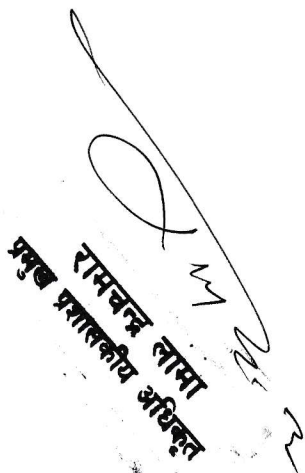 रामचन्द्र लामा
प्रमुख प्रशासकीय अधिकृत